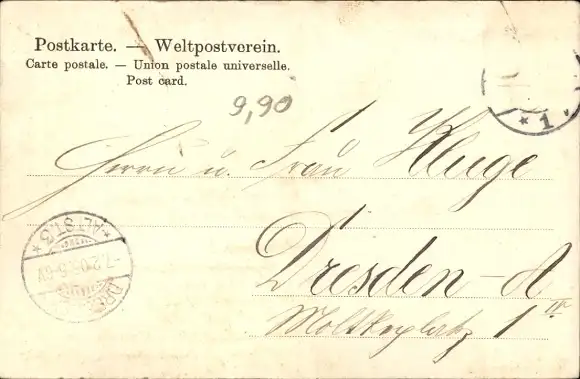 Postkarte. — Weltpostverein.
Carte postale. — Union postale universelle.
Post card.
9,90
Herrn u. Frau Kluge
Dresden-A
Moltkeplatz 1 III
* 1 *
* ALTST. 3 *
-7.2.05. 5-6V
DRE